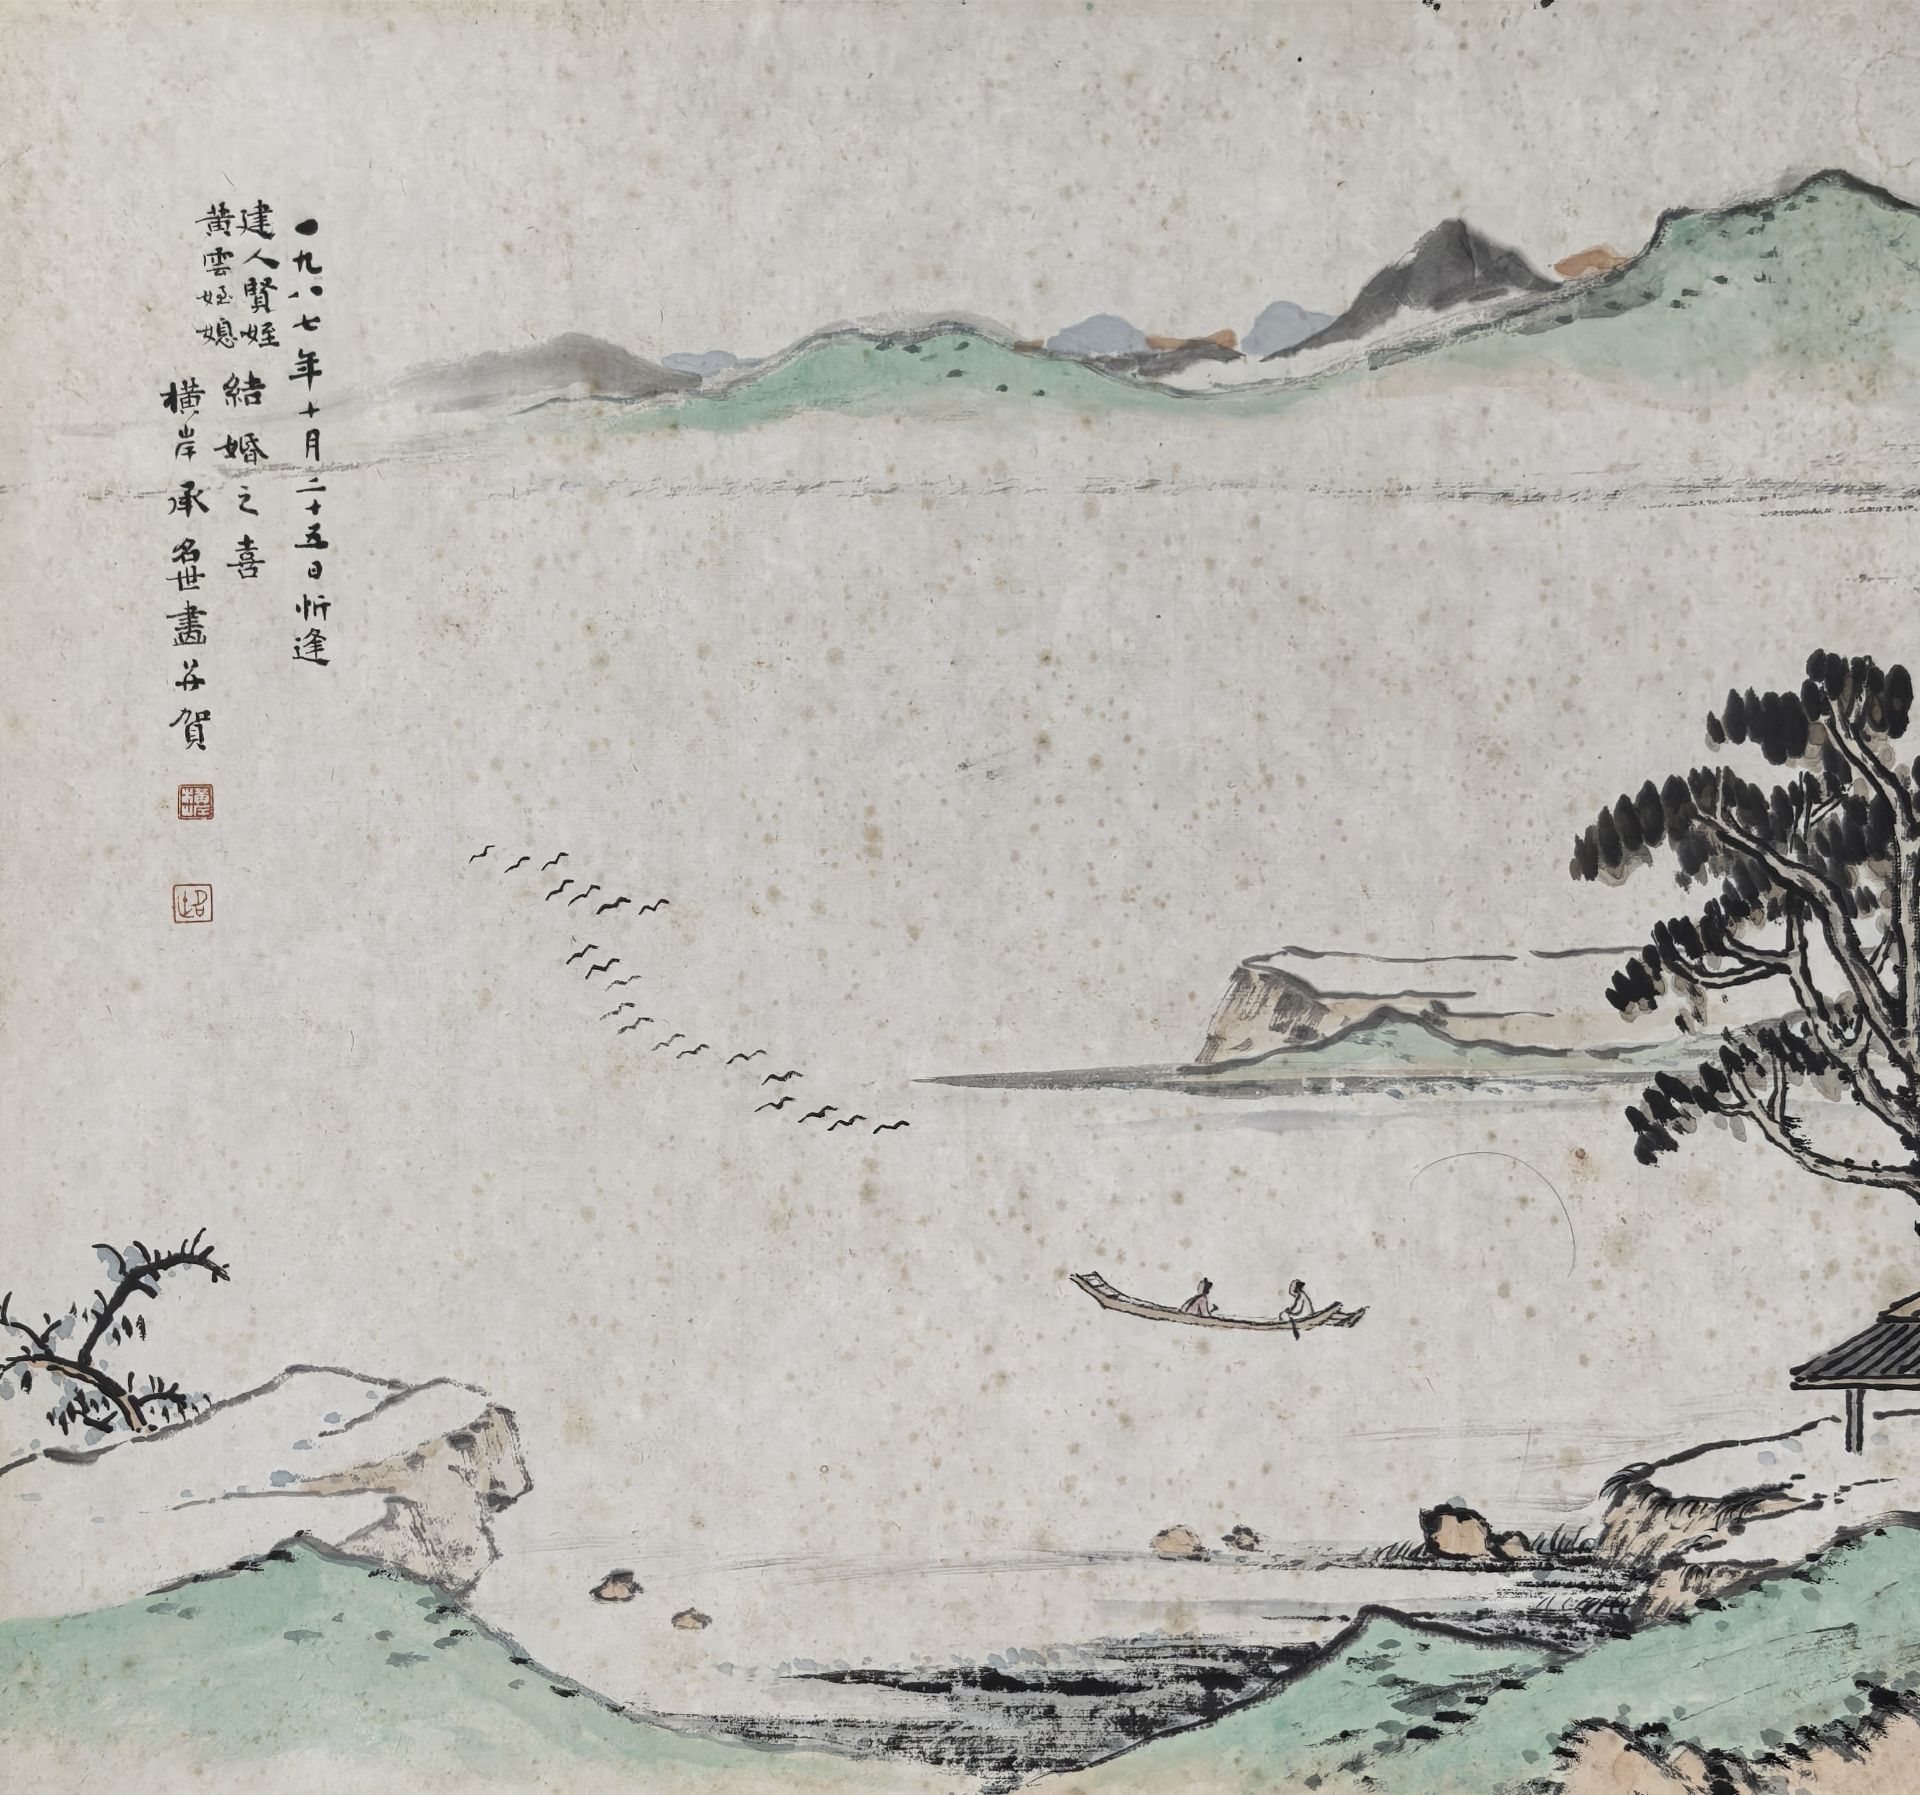 一九八七年十月二十五日忻逢
建人賢姪
黄雲姪媳
結婚之喜
橫岸承名世畫并賀